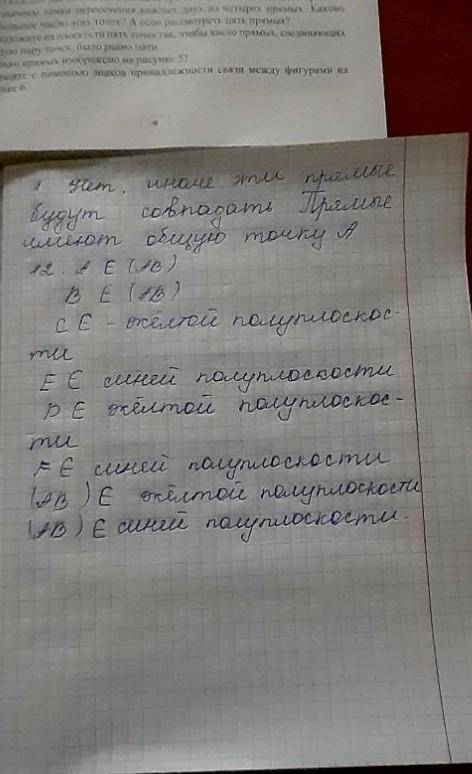 точки пересечения каждых двух из четырёх прямых. Каково
число этих точек? А если рассмотреть пять прямых?
на плоскости пять точек так, чтобы число прямых, соединяющих
пару точек, было равно пяти.
прямых изображено на рисунке 5?
с помощью знаков принадлежности связи между фигурами на
6.
1 Нет, иначе эти прямые
будут совпадать Прямые
имеют общую точку А
12. А Є (АВ)
В Є (АВ)
С Є - жёлтой полуплоскос-
ти
Е Є синей полуплоскости
D Є жёлтой полуплоскос-
ти
F Є синей полуплоскости
(АВ) Є жёлтой полуплоскости
(АВ) Є синей полуплоскости.